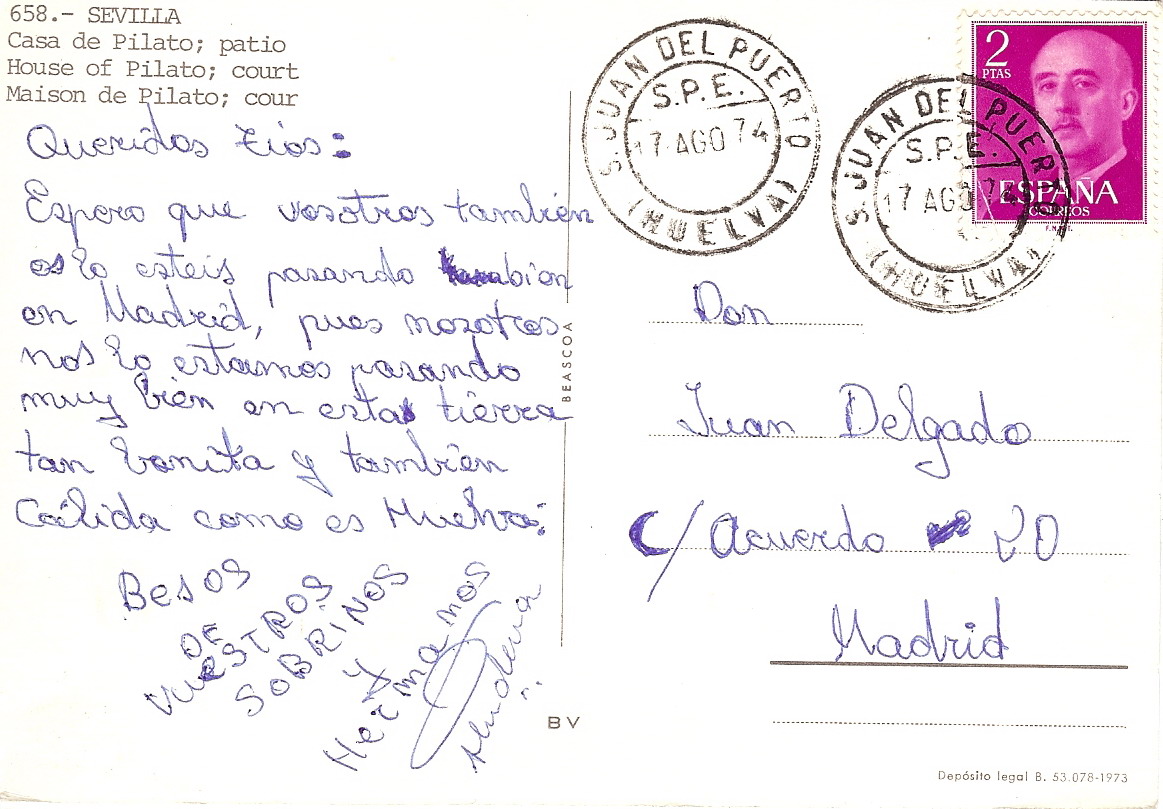 658.- SEVILLA
Casa de Pilato; patio
House of Pilato; court
Maison de Pilato; cour
Queridos tios:
Espero que vosotros tambien
os lo esteis pasando bien
en Madrid, pues nosotros
nos lo estamos pasando
muy bien en esta tierra
tan bonita y tambien
Cálida como es Huelva:
Besos
DE
VUESTROS
SOBRINOS
Y
Hermanos
BEASCOA
BV
S. JUAN DEL PUERTO (HUELVA)
S.P.E.
17 AGO 74
S. JUAN DEL PUERTO (HUELVA)
S.P.E.
17 AGO 74
2
PTAS
ESPAÑA
CORREOS
F.N.M.T.
Don
Juan Delgado
C/ Acuerdo nº 20
Madrid
Depósito legal B. 53.078-1973